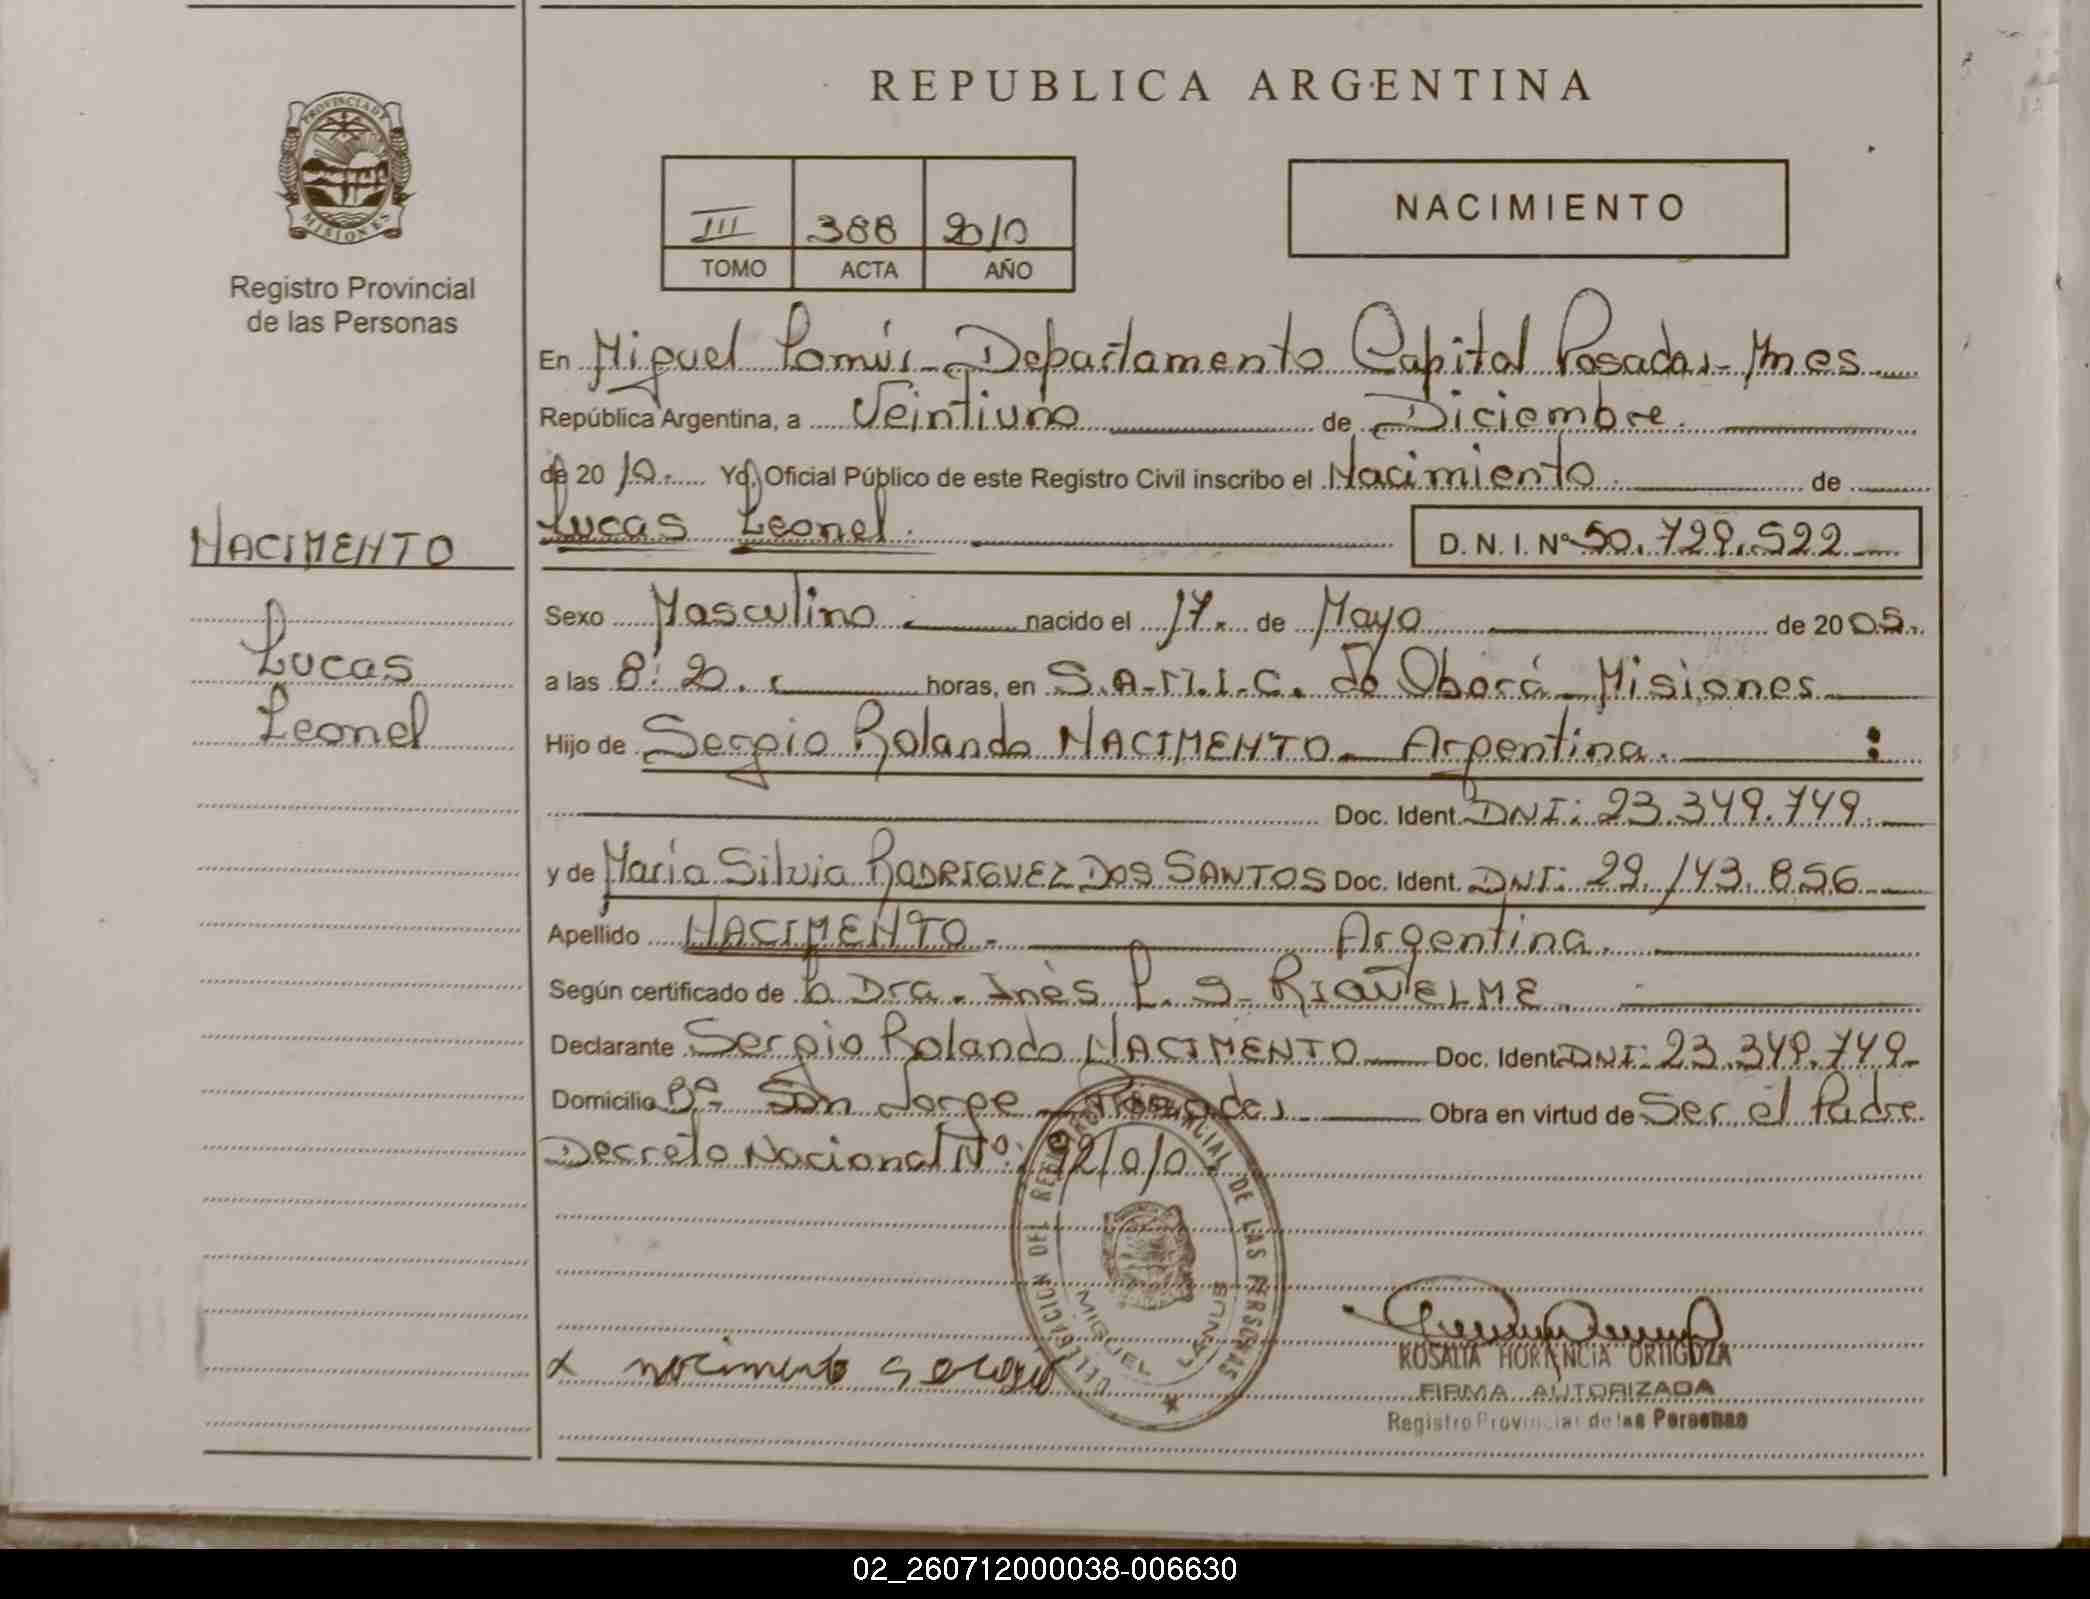 REPUBLICA ARGENTINA
PROVINCIA DE
MISIONES
Registro Provincial
de las Personas
III 388 2010
TOMO ACTA AÑO
NACIMIENTO
En Miguel Lanús - Departamento Capital Posadas - Mnes
República Argentina, a Veintiuno de Diciembre
de 2010. Yo, Oficial Público de este Registro Civil inscribo el Nacimiento de
Lucas Leonel. D. N. I. Nº 50.729.522
NACIMENTO
Lucas
Leonel
Sexo Masculino nacido el 17. de Mayo de 2005.
a las 8:20. horas, en S.A.M.I.C. de Oberá - Misiones
Hijo de Sergio Rolando NACIMENTO - Argentina.
Doc. Ident. DNI: 23.349.749.
y de María Silvia RODRIGUEZ DOS SANTOS Doc. Ident. DNI: 29.143.856
Apellido NACIMENTO. Argentina.
Según certificado de la Dra. Inés L. G. RIQUELME.
Declarante Sergio Rolando NACIMENTO Doc. Ident. DNI: 23.349.749.
Domicilio Bº San Jorge - Posadas Obra en virtud de Ser el Padre
Decreto Nacional Nº: 92/010
DELEGACION DEL REGISTRO PROVINCIAL DE LAS PERSONAS
MIGUEL LANUS
ROSALIA HORTENCIA ORTIGOZA
x nacimento sergio
FIRMA AUTORIZADA
Registro Provincial de las Personas
02_260712000038-006630